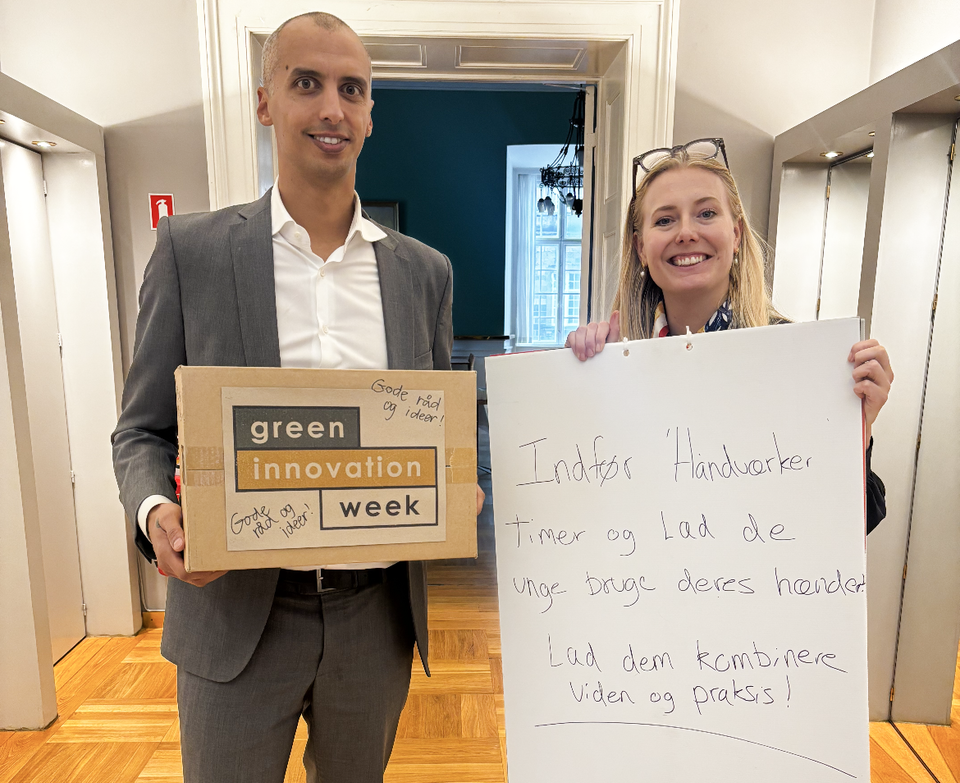 Gode råd
og ideer!
green
innovation
week
Gode
råd og
ideer!
Indfør 'Håndværker'
timer og Lad de
unge bruge deres hænder!
Lad dem kombinere
viden og praksis!